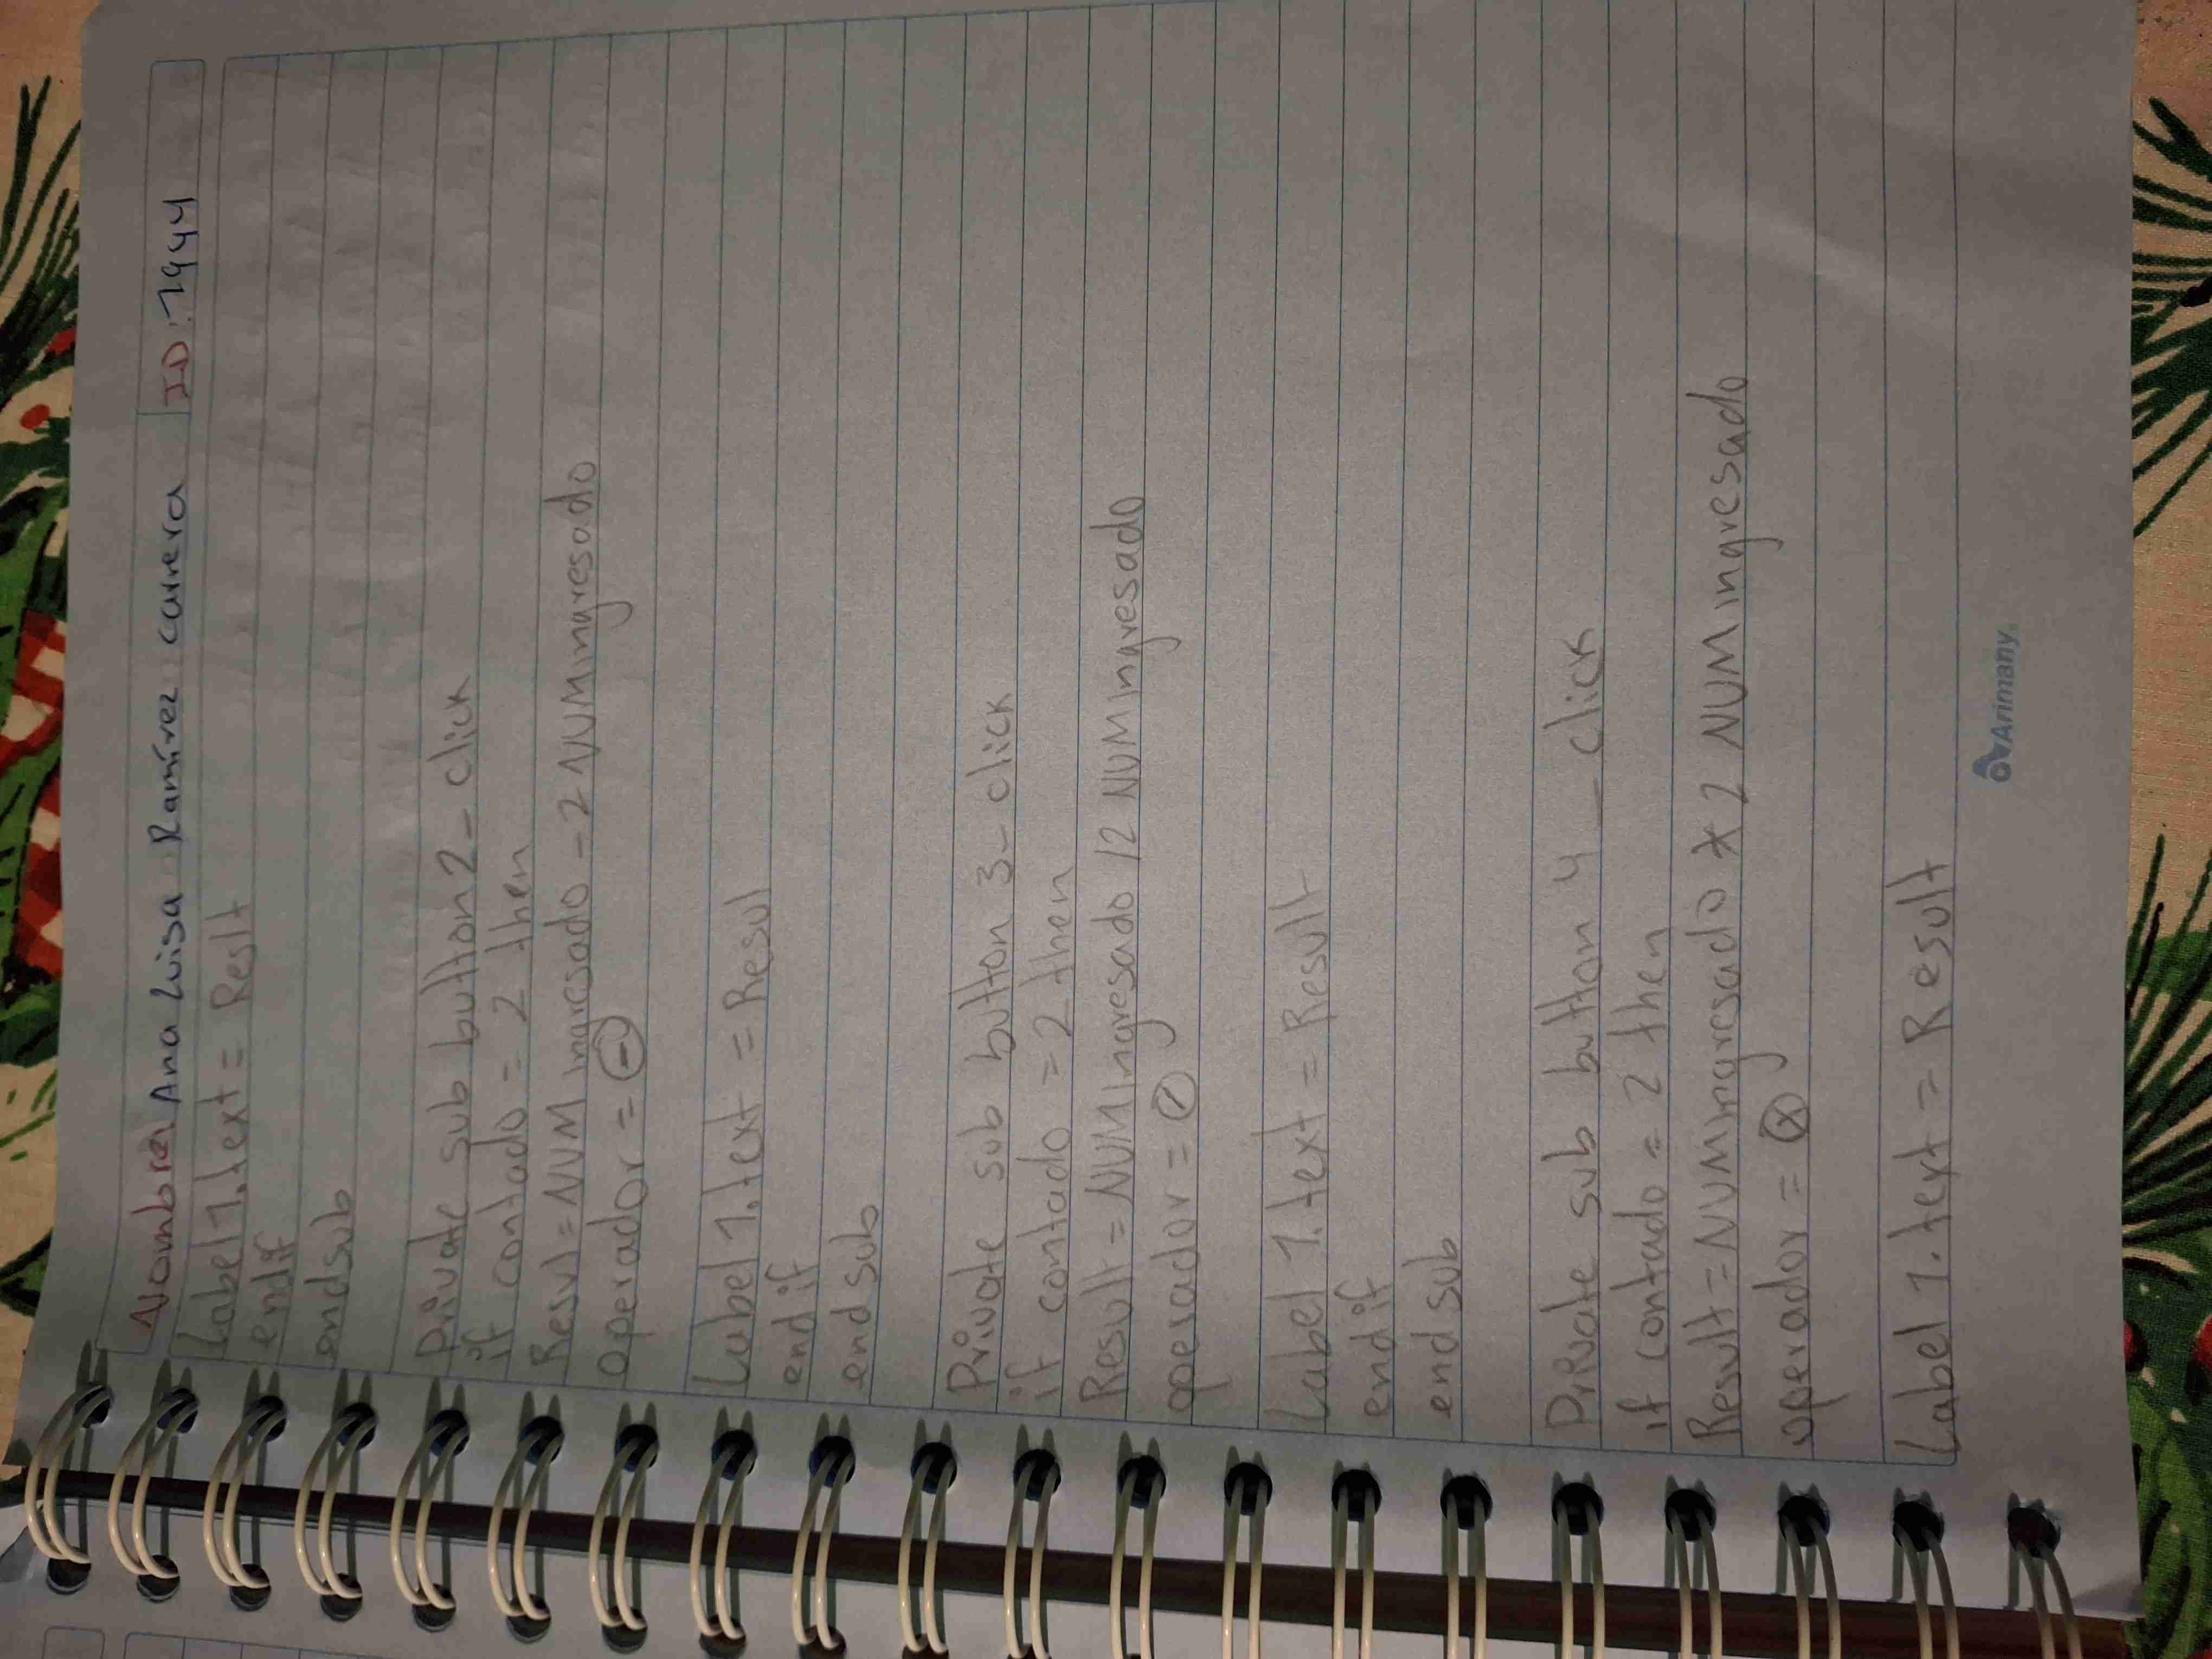 Nombre: Ana Luisa Ramírez carrera ID: 7944
Label 1.text = Reslt
endif
endsub
Private sub button 2 - click
if contado = 2 then
Resul = NUM ingresado - 2 NUMingresado
operador = (-)
Label 1.text = Resul
end if
end sub
Private sub button 3 - click
if contado = 2 then
Result = NUM Ingresado / 2 NUM Ingresado
operador = (/)
Label 1.text = Result
endif
end sub
Private sub button 4 - click
if contado = 2 then
Result = NUMingresado * 2 NUM ingresado
operador = (x)
Label 1.text = Result
Arimany